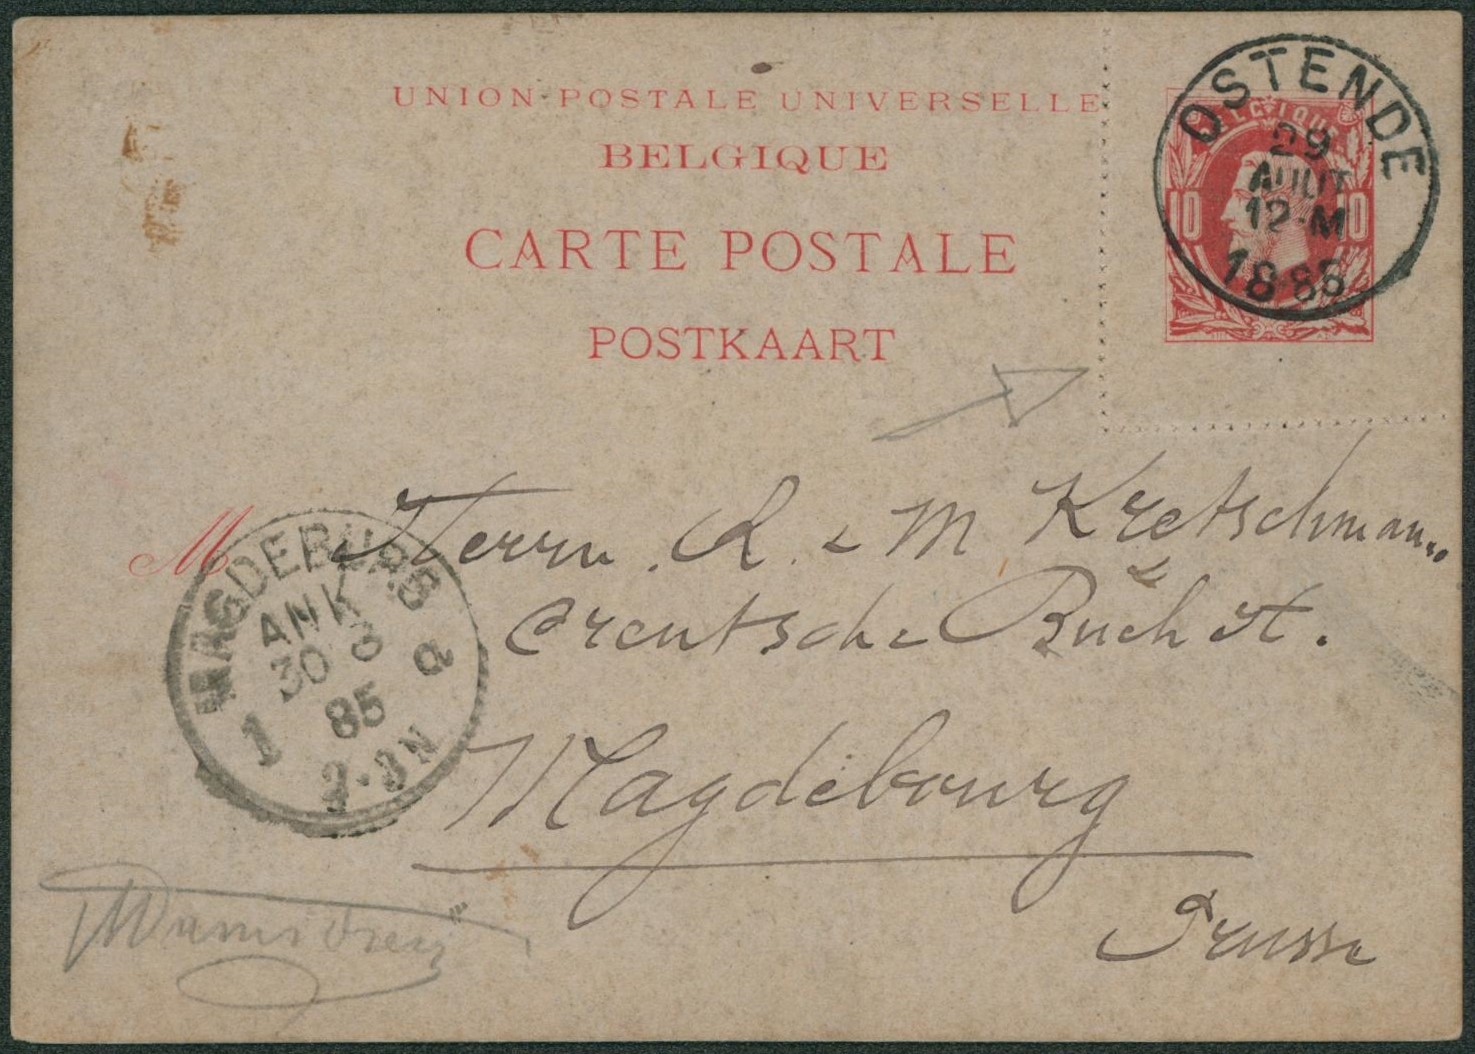 UNION POSTALE UNIVERSELLE
BELGIQUE
CARTE POSTALE
POSTKAART
OSTENDE
29
AOUT
12-M
1885
BELGIQUE
10 10
M Herrn R. & M Kretschmann
Creutsche Buch st.
Magdebourg
Prusse
MAGDEBURG
ANK
30 8
85
1 a
2-3N